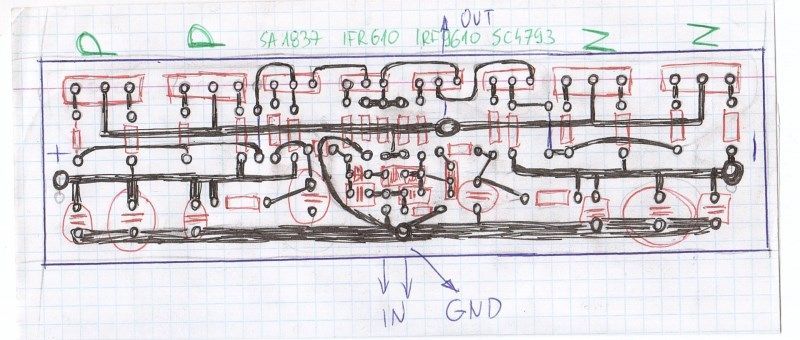 OUT
P P SA1837 IFR610 IRF9610 SC4793 N N
+ -
IN GND